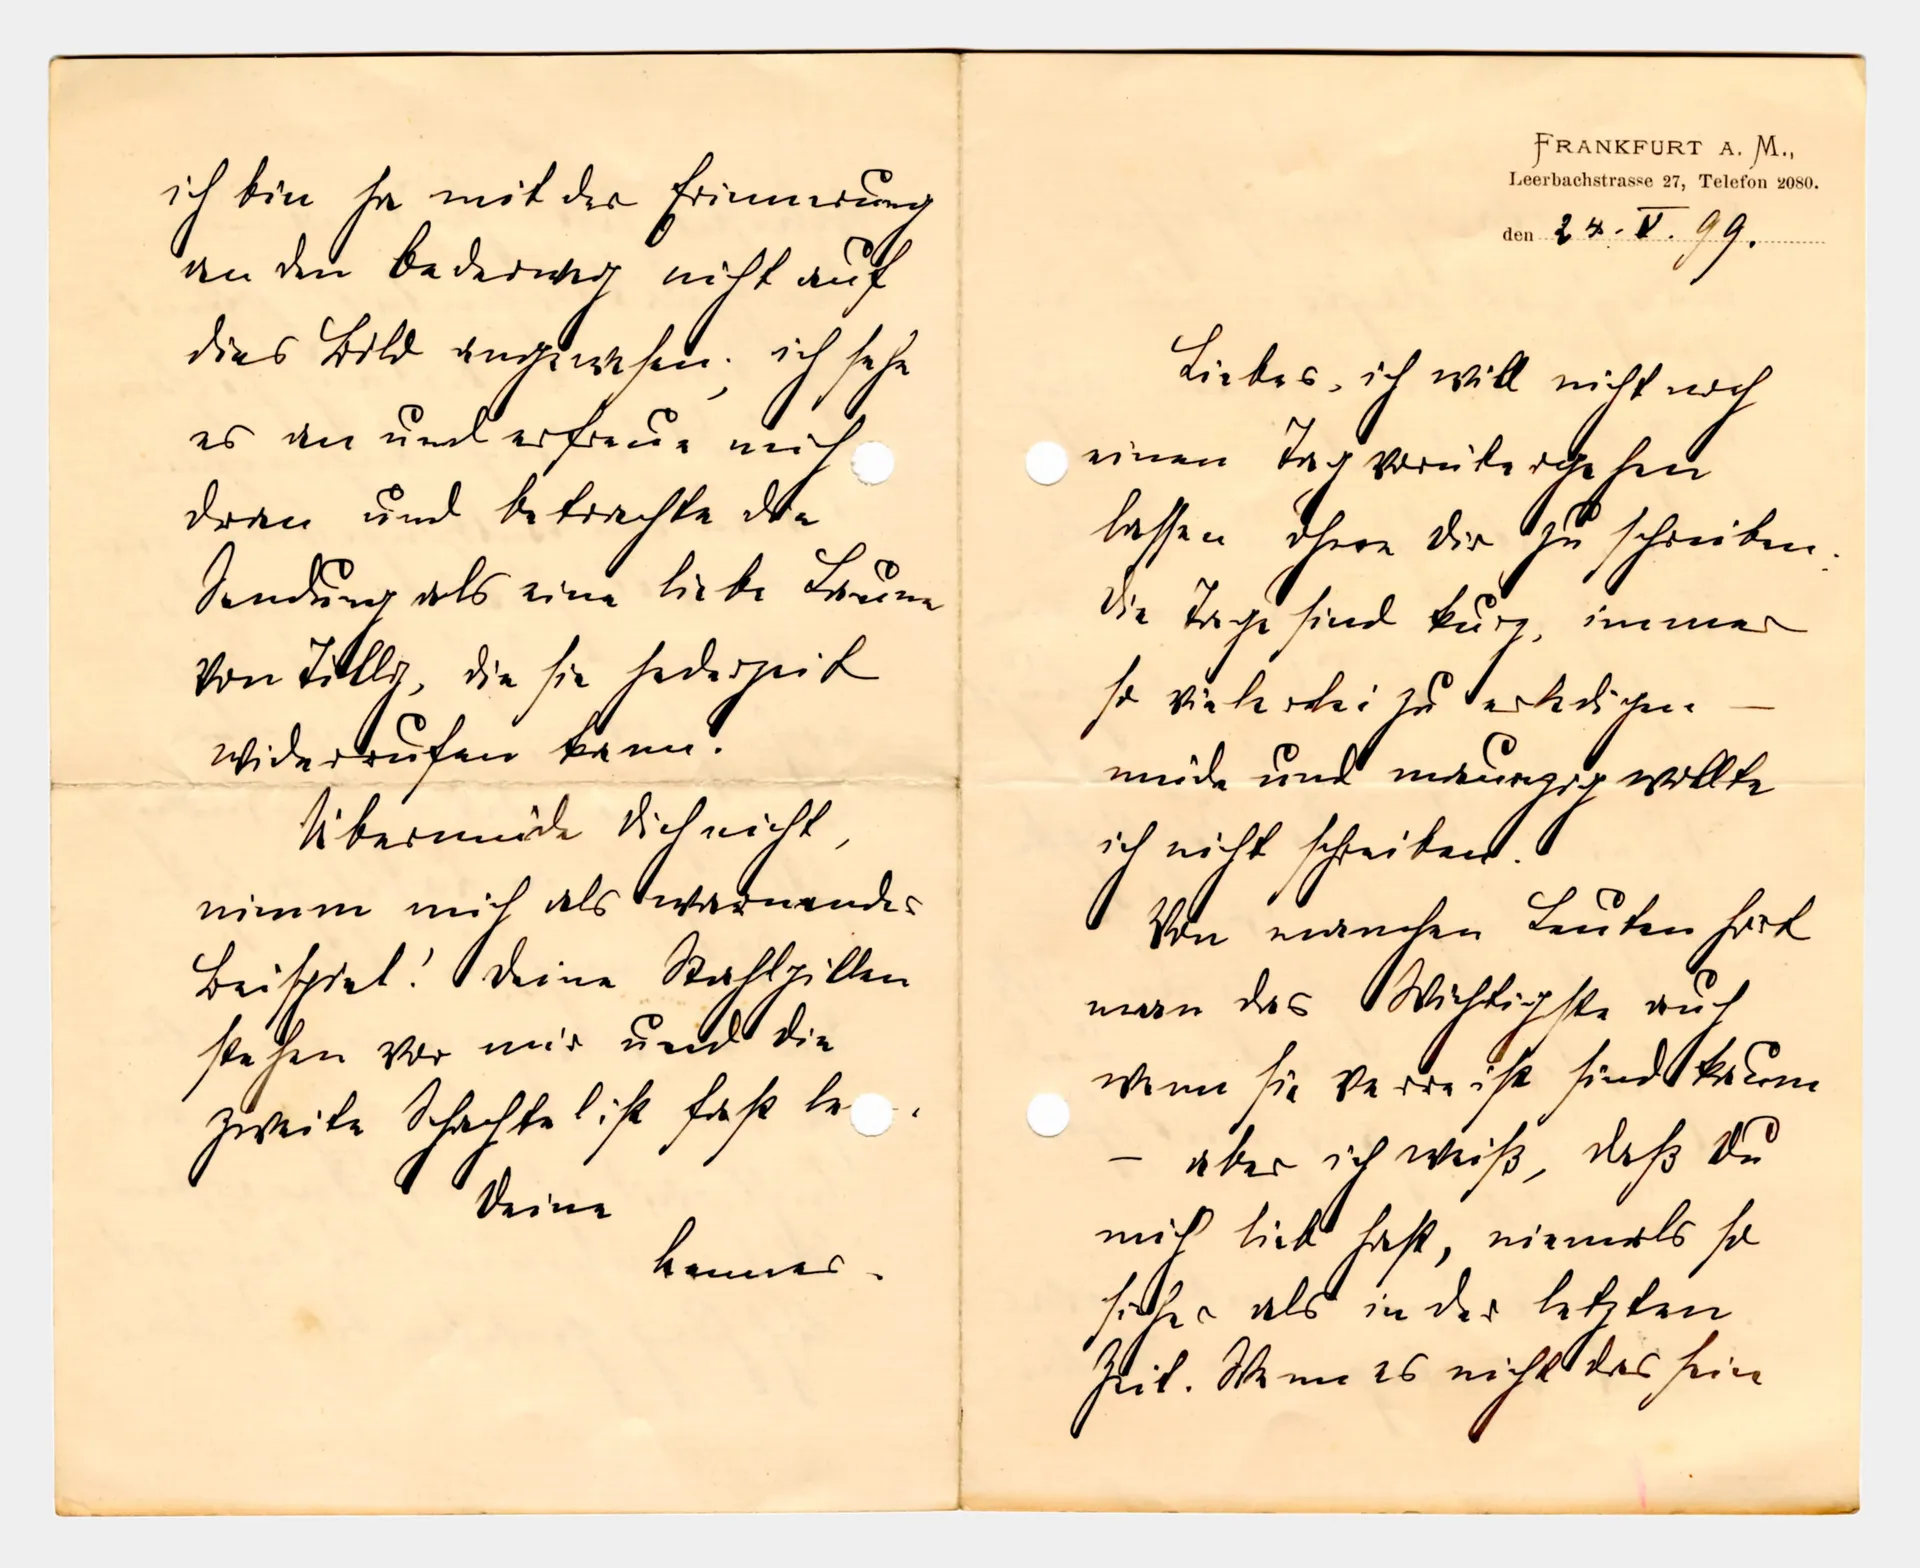 FRANKFURT A. M.,
Leerbachstrasse 27, Telefon 2080.
den 24. V. 99.
Liebes, ich will nicht noch
einen Tag vorübergehen
lassen ohne Dir zu schreiben.
Die Tage sind kurz, immer
so vielerlei zu erledigen —
müde und maunzig wollte
ich nicht schreiben.
Von manchen Leuten hört
man das Wichtigste auch
wenn sie verreist sind kaum
— aber ich weiß, daß Du
mich lieb hast, niemals so
sicher als in der letzten
Zeit. Wenn es nicht das sein
ich bin ja mit der Erinnerung
an den nicht auf
dies Bild angewiesen; ich sehe
es an und erfreue mich
dran und betrachte die
Sendung als eine liebe Laune
von Tilly, die sie jederzeit
widerrufen kann.
Übermüde Dich nicht,
nimm mich als warnendes
Beispiel! Deine Stahlpillen
stehen vor mir und die
zweite Schachtel ist fast
Deine